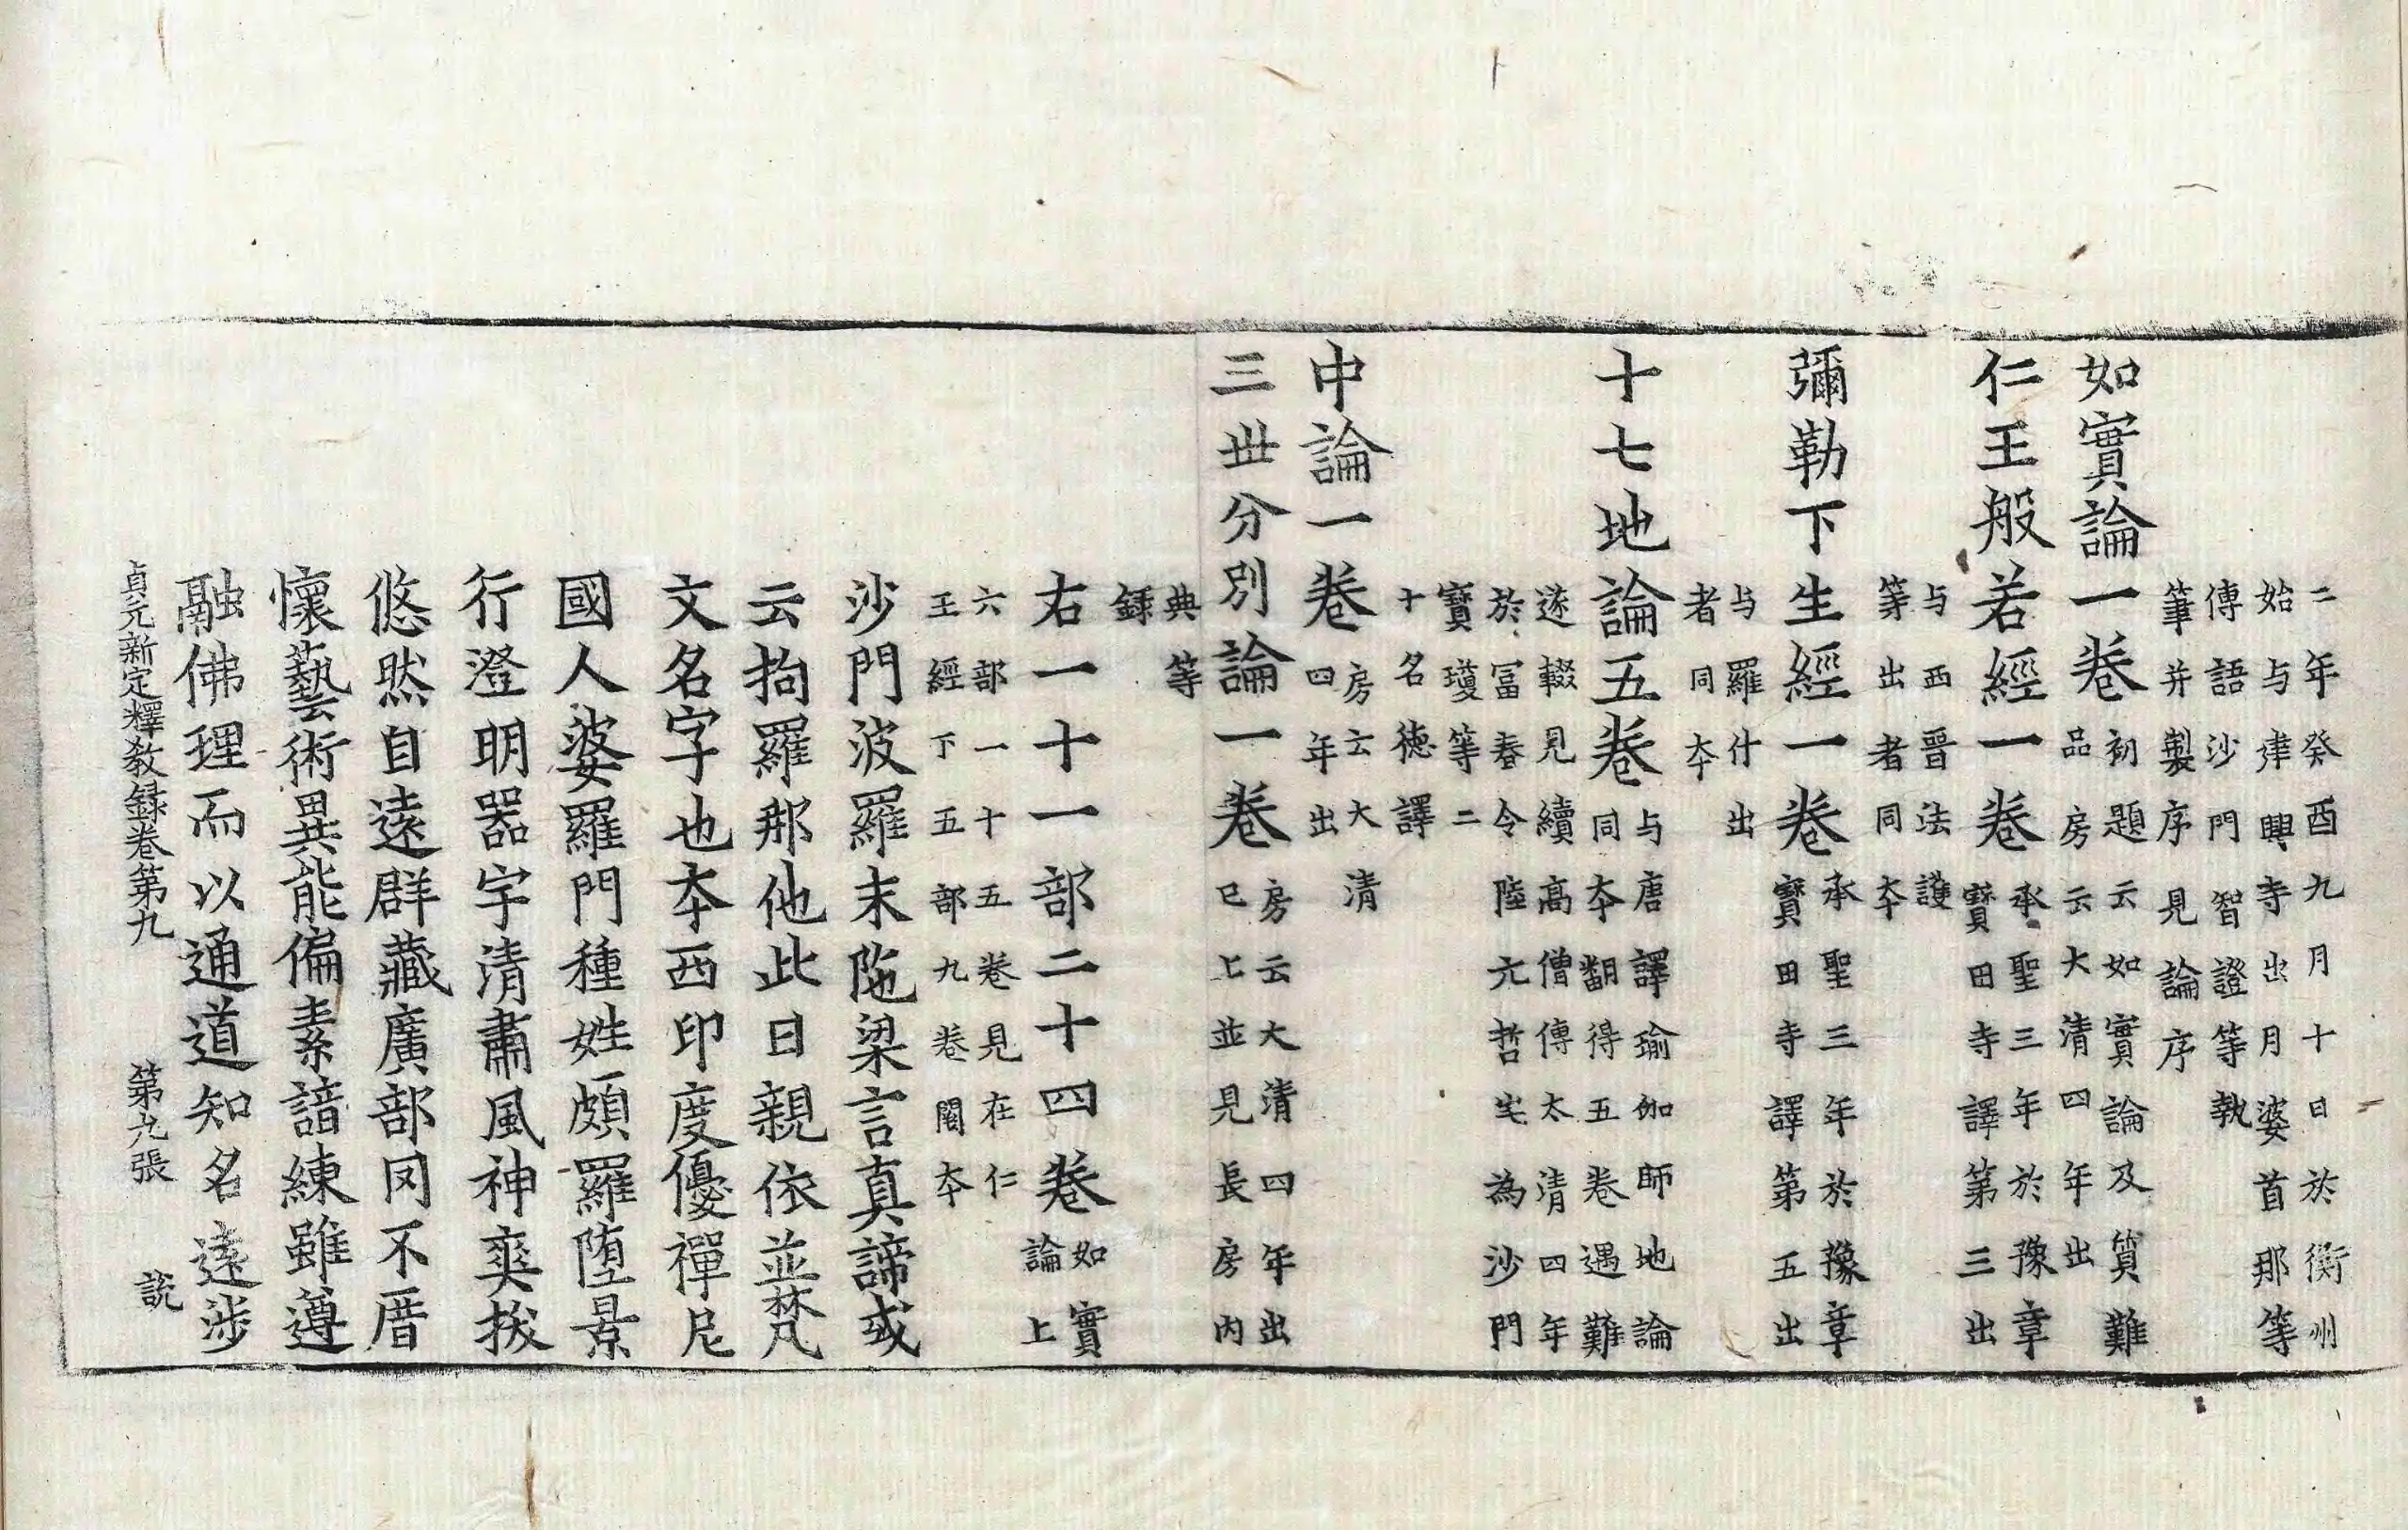 二年癸酉九月十日於衡州
始与建興寺出月婆首那等
傳語沙門智證等執
筆并製序見論序
如實論一卷
初題云如實論及質難
品房云大清四年出
仁王般若經一卷
承聖三年於豫章
寶田寺譯第三出
与西晉法護
等出者同夲
彌勒下生經一卷
承聖三年於豫章
寶田寺譯第五出
与羅什出
者同夲
十七地論五卷
与唐譯瑜伽師地論
同夲翻得五卷遇難
遂輟見續高僧傳太清四年
於冨春令陸元哲宅為沙門
寶瓊等二
十名德譯
中論一卷
房云大清
四年出
三丗分別論一卷
房云大清四年出
已上並見長房內
典等
錄
右一十一部二十四卷
如實
論上
六部一十五卷見在仁
王經下五部九卷闕夲
沙門波羅末陁梁言真諦或
云拘羅那他此曰親依並梵
文名字也夲西印度優禪尼
國人婆羅門種姓頗羅墮景
行澄明器宇清肅風神爽拔
悠然自遠群藏廣部罔不厝
懷藝術異能偏素諳練雖遵
融佛理而以通道知名遠涉
貞元新定釋教録卷第九 第九張 䛁